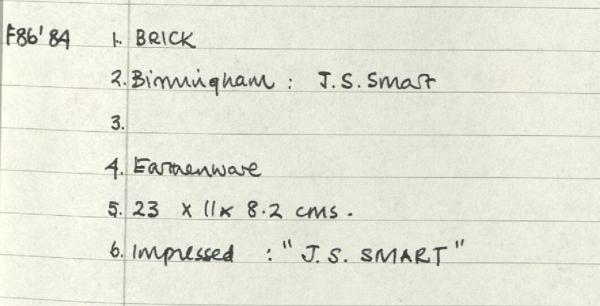 F86'84 1. BRICK
2. Birmingham : J.S. Smart
3.
4. Earthenware
5. 23 x 11 x 8.2 cms.
6. Impressed : "J.S. SMART"